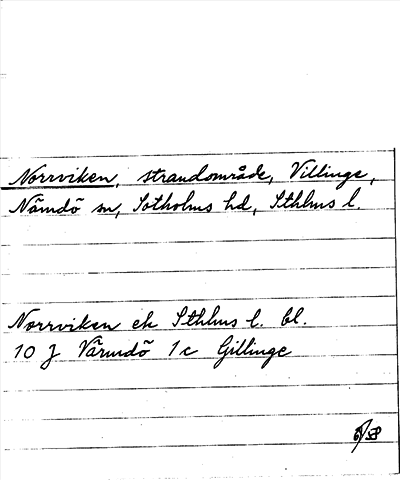 Norrviken, strandområde, Villinge,
Nämdö sn, Sotholms hd, Sthlms l.
Norrviken ek Sthlms l. bl.
10 J Värmdö 1c Gillinge